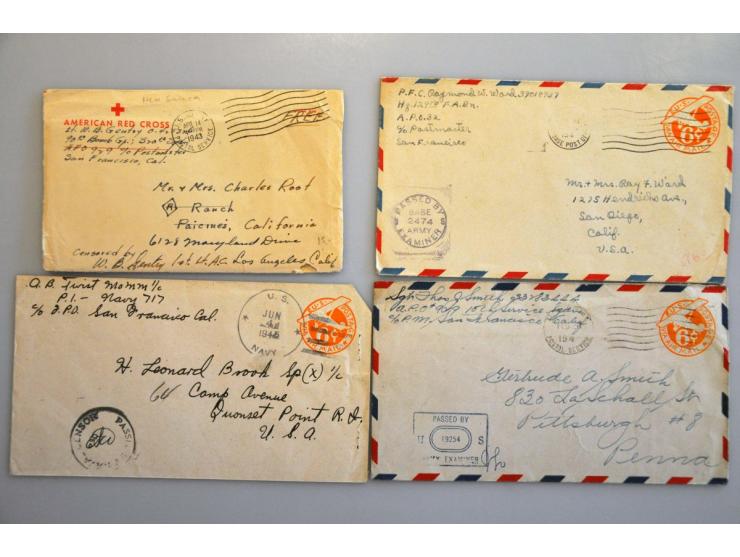 New Guinea
AMERICAN RED CROSS
APR 14
1943
FREE
Lt. W. B. Gentry
90th Bomb Gp; 320th
APO 929 c/o Postmaster
San Francisco, Cal.
Mr. + Mrs. Charles Root
R Ranch
Paicines, California
6128 Maryland Drive
Los Angeles, Calif.
Censored by
W. B. Gentry 1st Lt. A.C.
P.F.C. Raymond W. Ward
Hq. 129th F.A. Bn.
A.P.O. 32
c/o Postmaster
San Francisco
U.S. POSTAGE
6¢
AIR MAIL
PASSED BY
BASE
2474
ARMY
EXAMINER
Mr. + Mrs. Ray F. Ward
1275 Hendricks Ave.,
San Diego,
Calif.
U.S.A.
A. B. Twist MoMM 1/c
P.T. - Navy 717
c/o F.P.O. San Francisco Cal.
U.S.
JUN
NAVY
U.S. POSTAGE
6¢
AIR MAIL
H. Leonard Brook Sp(x) 1/c
64 Camp Avenue
Quonset Point R.I.
U.S.A.
PASSED
CENSOR
Sgt. Thos. J. Smith
c/o P.M. San Francisco Calif
POSTAL SERVICE
194
U.S. POSTAGE
6¢
AIR MAIL
Gertrude A. Smith
830 St
Pittsburgh #8
Penna
PASSED BY
U S
19254
ARMY EXAMINER